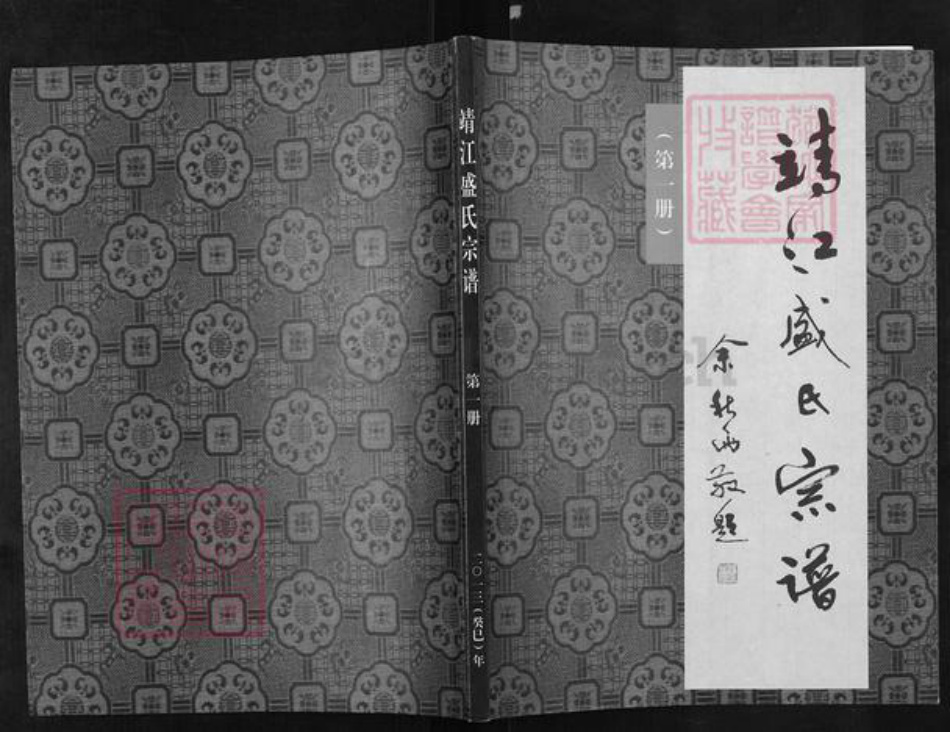 靖江盛氏宗谱
余秋雨敬题
（第一册）
靖江盛氏宗谱
第一册
二〇一三（癸巳）年